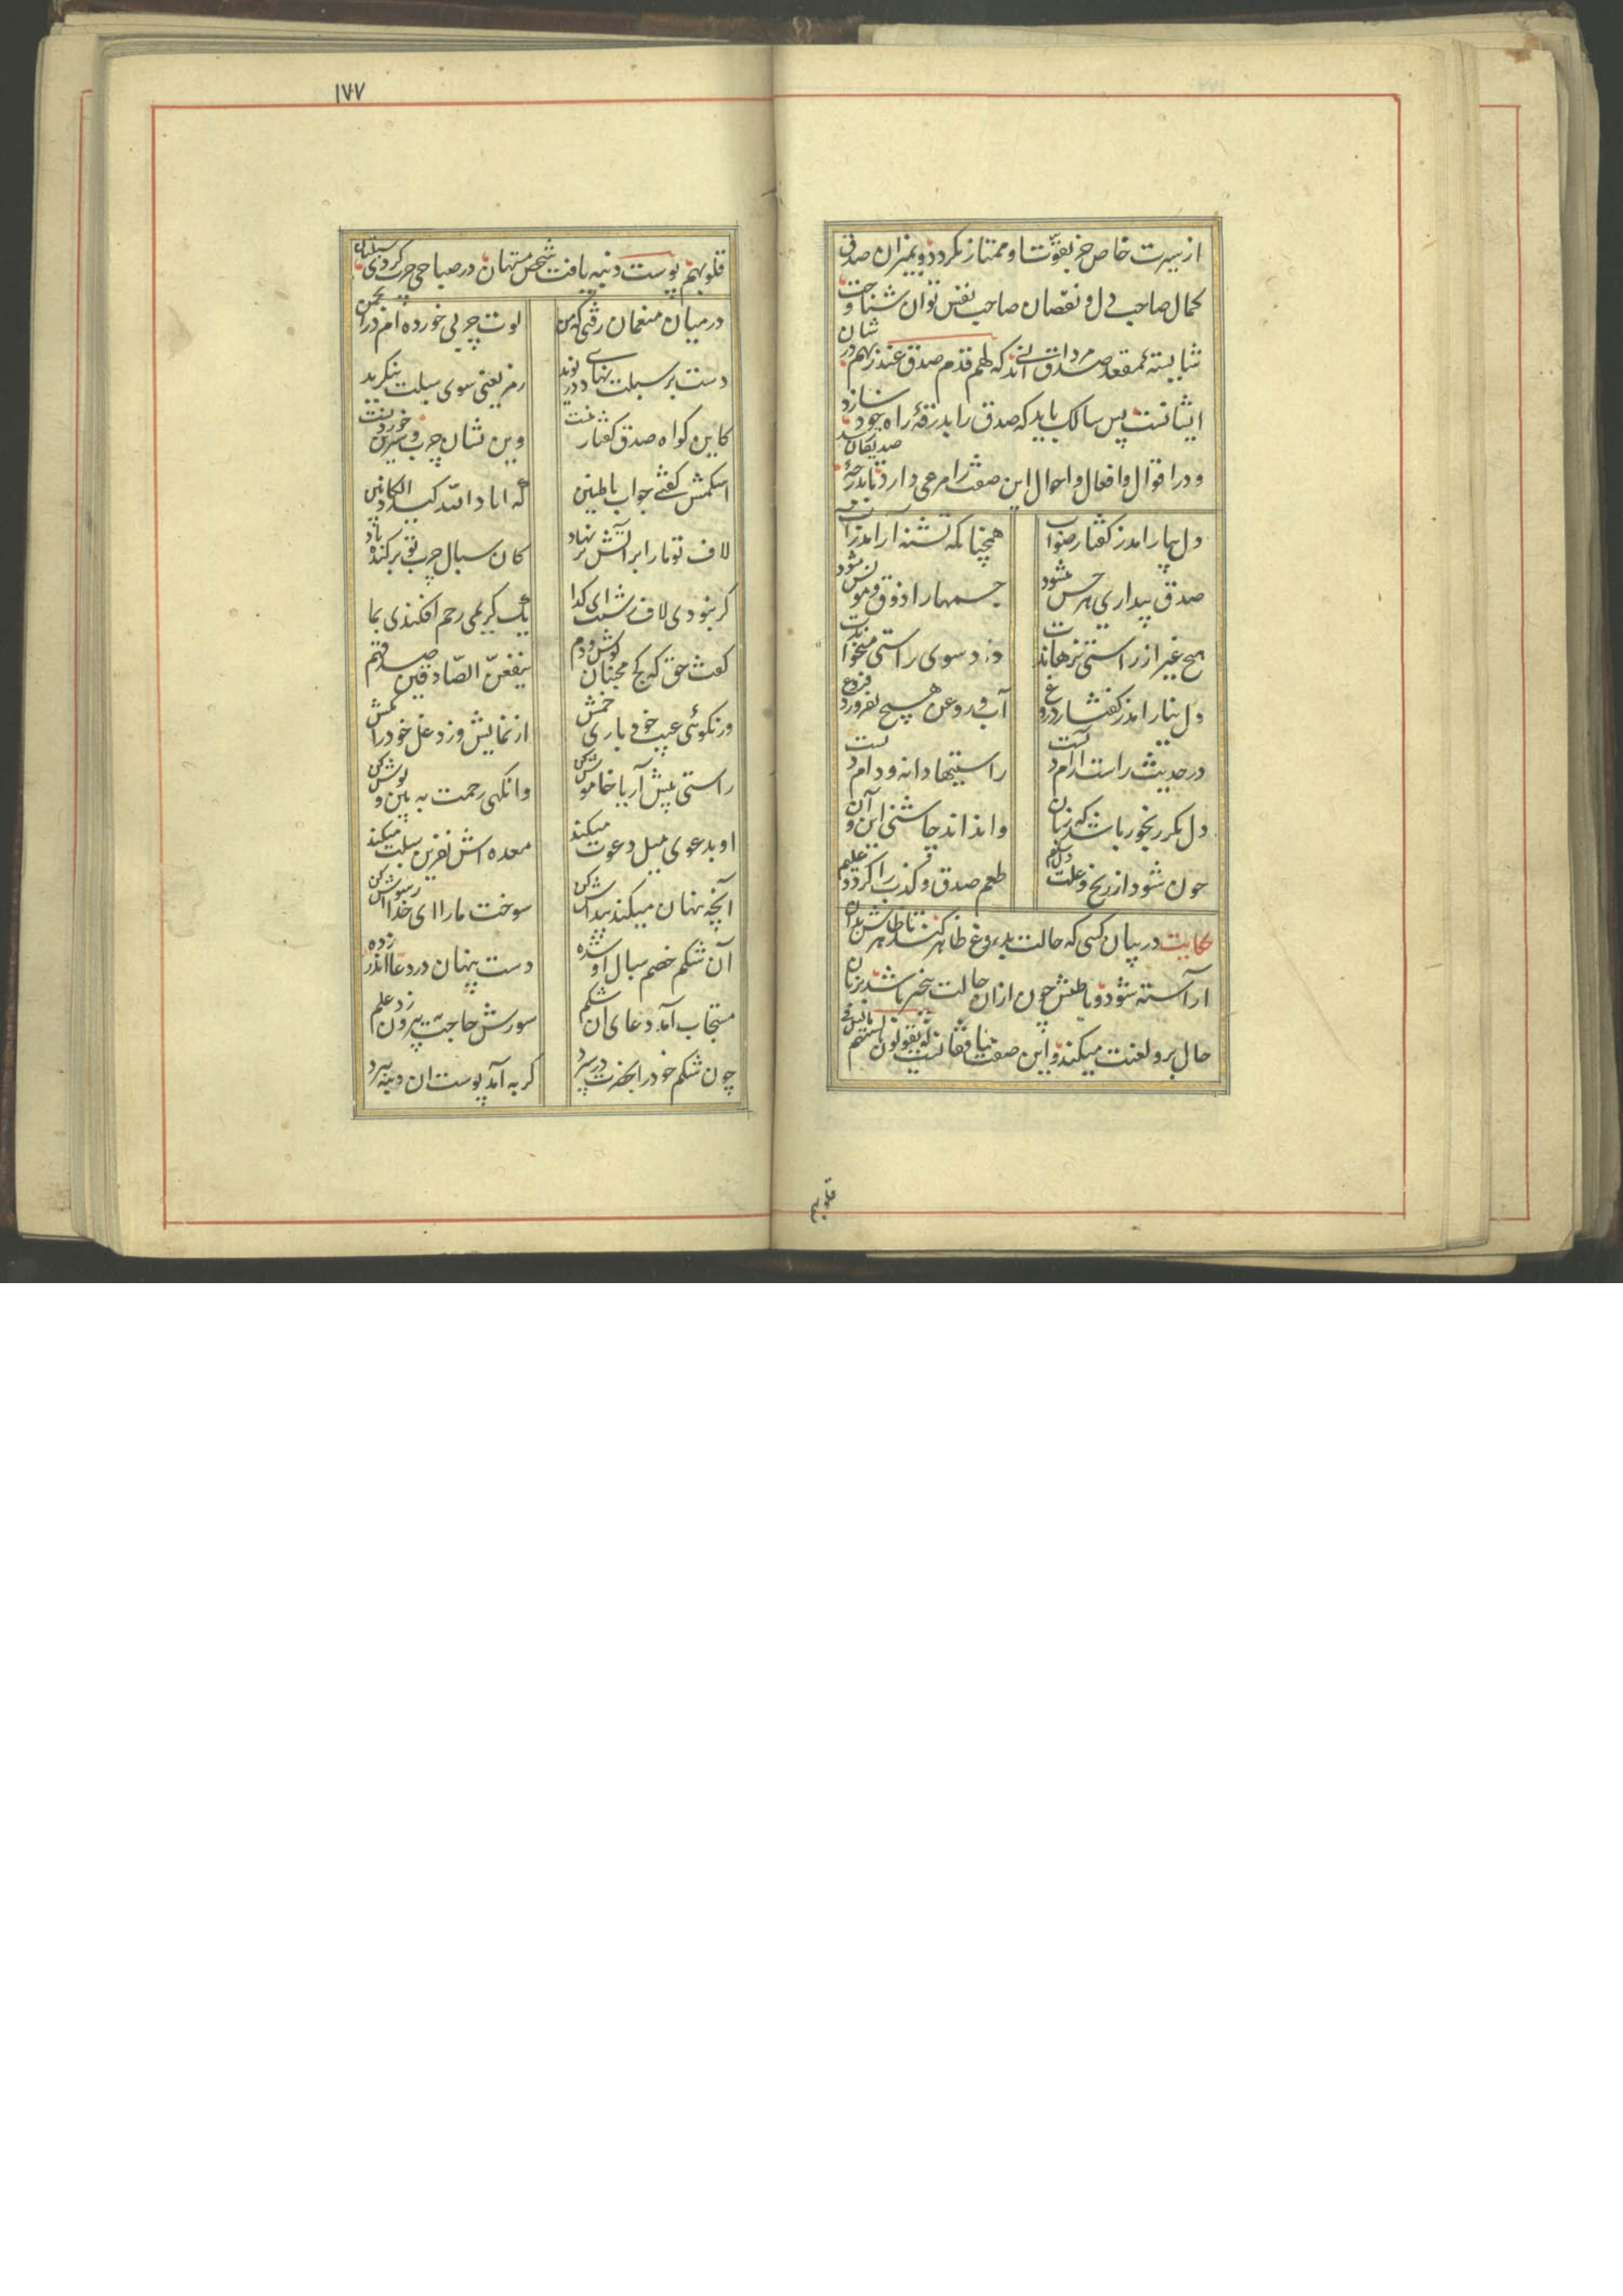 از سیرت خاص جز بقوت او ممتاز نکردد و بمیزان صدق
کمال صاحب دل و نقصان صاحب نفس توان شناخت و
شایسته مقعد صدق مردانی اند که لهم قدم صدق عند ربهم در شان
ایشانست پس سالک باید که صدق را بدرقهٔ راه خود سازد
و در اقوال و افعال و احوال این صفت را مرعی دارد تا بدرجهٔ صدیقان رسد
دل بیارامد ز کفتار صواب
همچنانکه تشنه آرامد ز آب
صدق بیداری هر حس میشود
جسمها را ذوق و مونس میشود
هیچ غیر از راستی نرهاندت
داد سوی راستی میخواندت
دل نیارامد ز کفتار دروغ
آب و روغن هیچ نفروزد فروغ
در حدیث راست آرام دلست
راستیها دانه و دام دلست
دل مکر رنجور باشد که زبان
وا نداند چاشنی این و آن
چون شود از رنج و علت دل سلیم
طعم صدق و کذب را کردد علیم
حکایت در بیان کسی که حالت بدروغ ظاهر کند تا ظاهرش بدان
آراسته شود و باطنش چون از آن حالت بیخبر باشد بزبان
حال برو لعنت میکند و این صفت منافقانست که یقولون بالسنتهم ما لیس فی
قلوبهم
۱۷۷
قلوبهم پوست دنبه یافت شخص مستهان در صباحی چرب کردی سبلتان
در میان منعمان رفتی که من
لوت چربی خورده‌ام در انجمن
دست بر سبلت نهادی در نوید
رمز یعنی سوی سبلت بنکرید
کاین کواه صدق کفتار منست
وین نشان چرب و شیرین خوردنست
اشکمش کفتی جواب باطنین
که اباد الله کید الکاذبین
لاف تو ما را بر آتش بر نهاد
کان سبال چرب تو برکنده باد
کر نبودی لاف زشتت ای کدا
یک کریمی رحم افکندی بما
کفت حق که کج مجنبان کوش و دم
ینفعن الصادقین صدقهم
ور نکوئی عیب خود باری خمش
از نمایش وز دغل خود را مکش
راستی پیش آر یا خاموش کن
وانکهی رحمت به بین و نوش کن
او بدعوی میل دعوت میکند
معده اش نفرین سبلت میکند
آنچه پنهان میکند پیداش کن
سوخت ما را ای خدا رسواش کن
آن شکم خصم سبال او شده
دست پنهان در دعا اندر زده
مستجاب آمد دعای آن شکم
سورش حاجت بیرون زد علم
چون شکم خود را بحضرت در سپرد
کربه آمد پوست ان دنبه ببرد